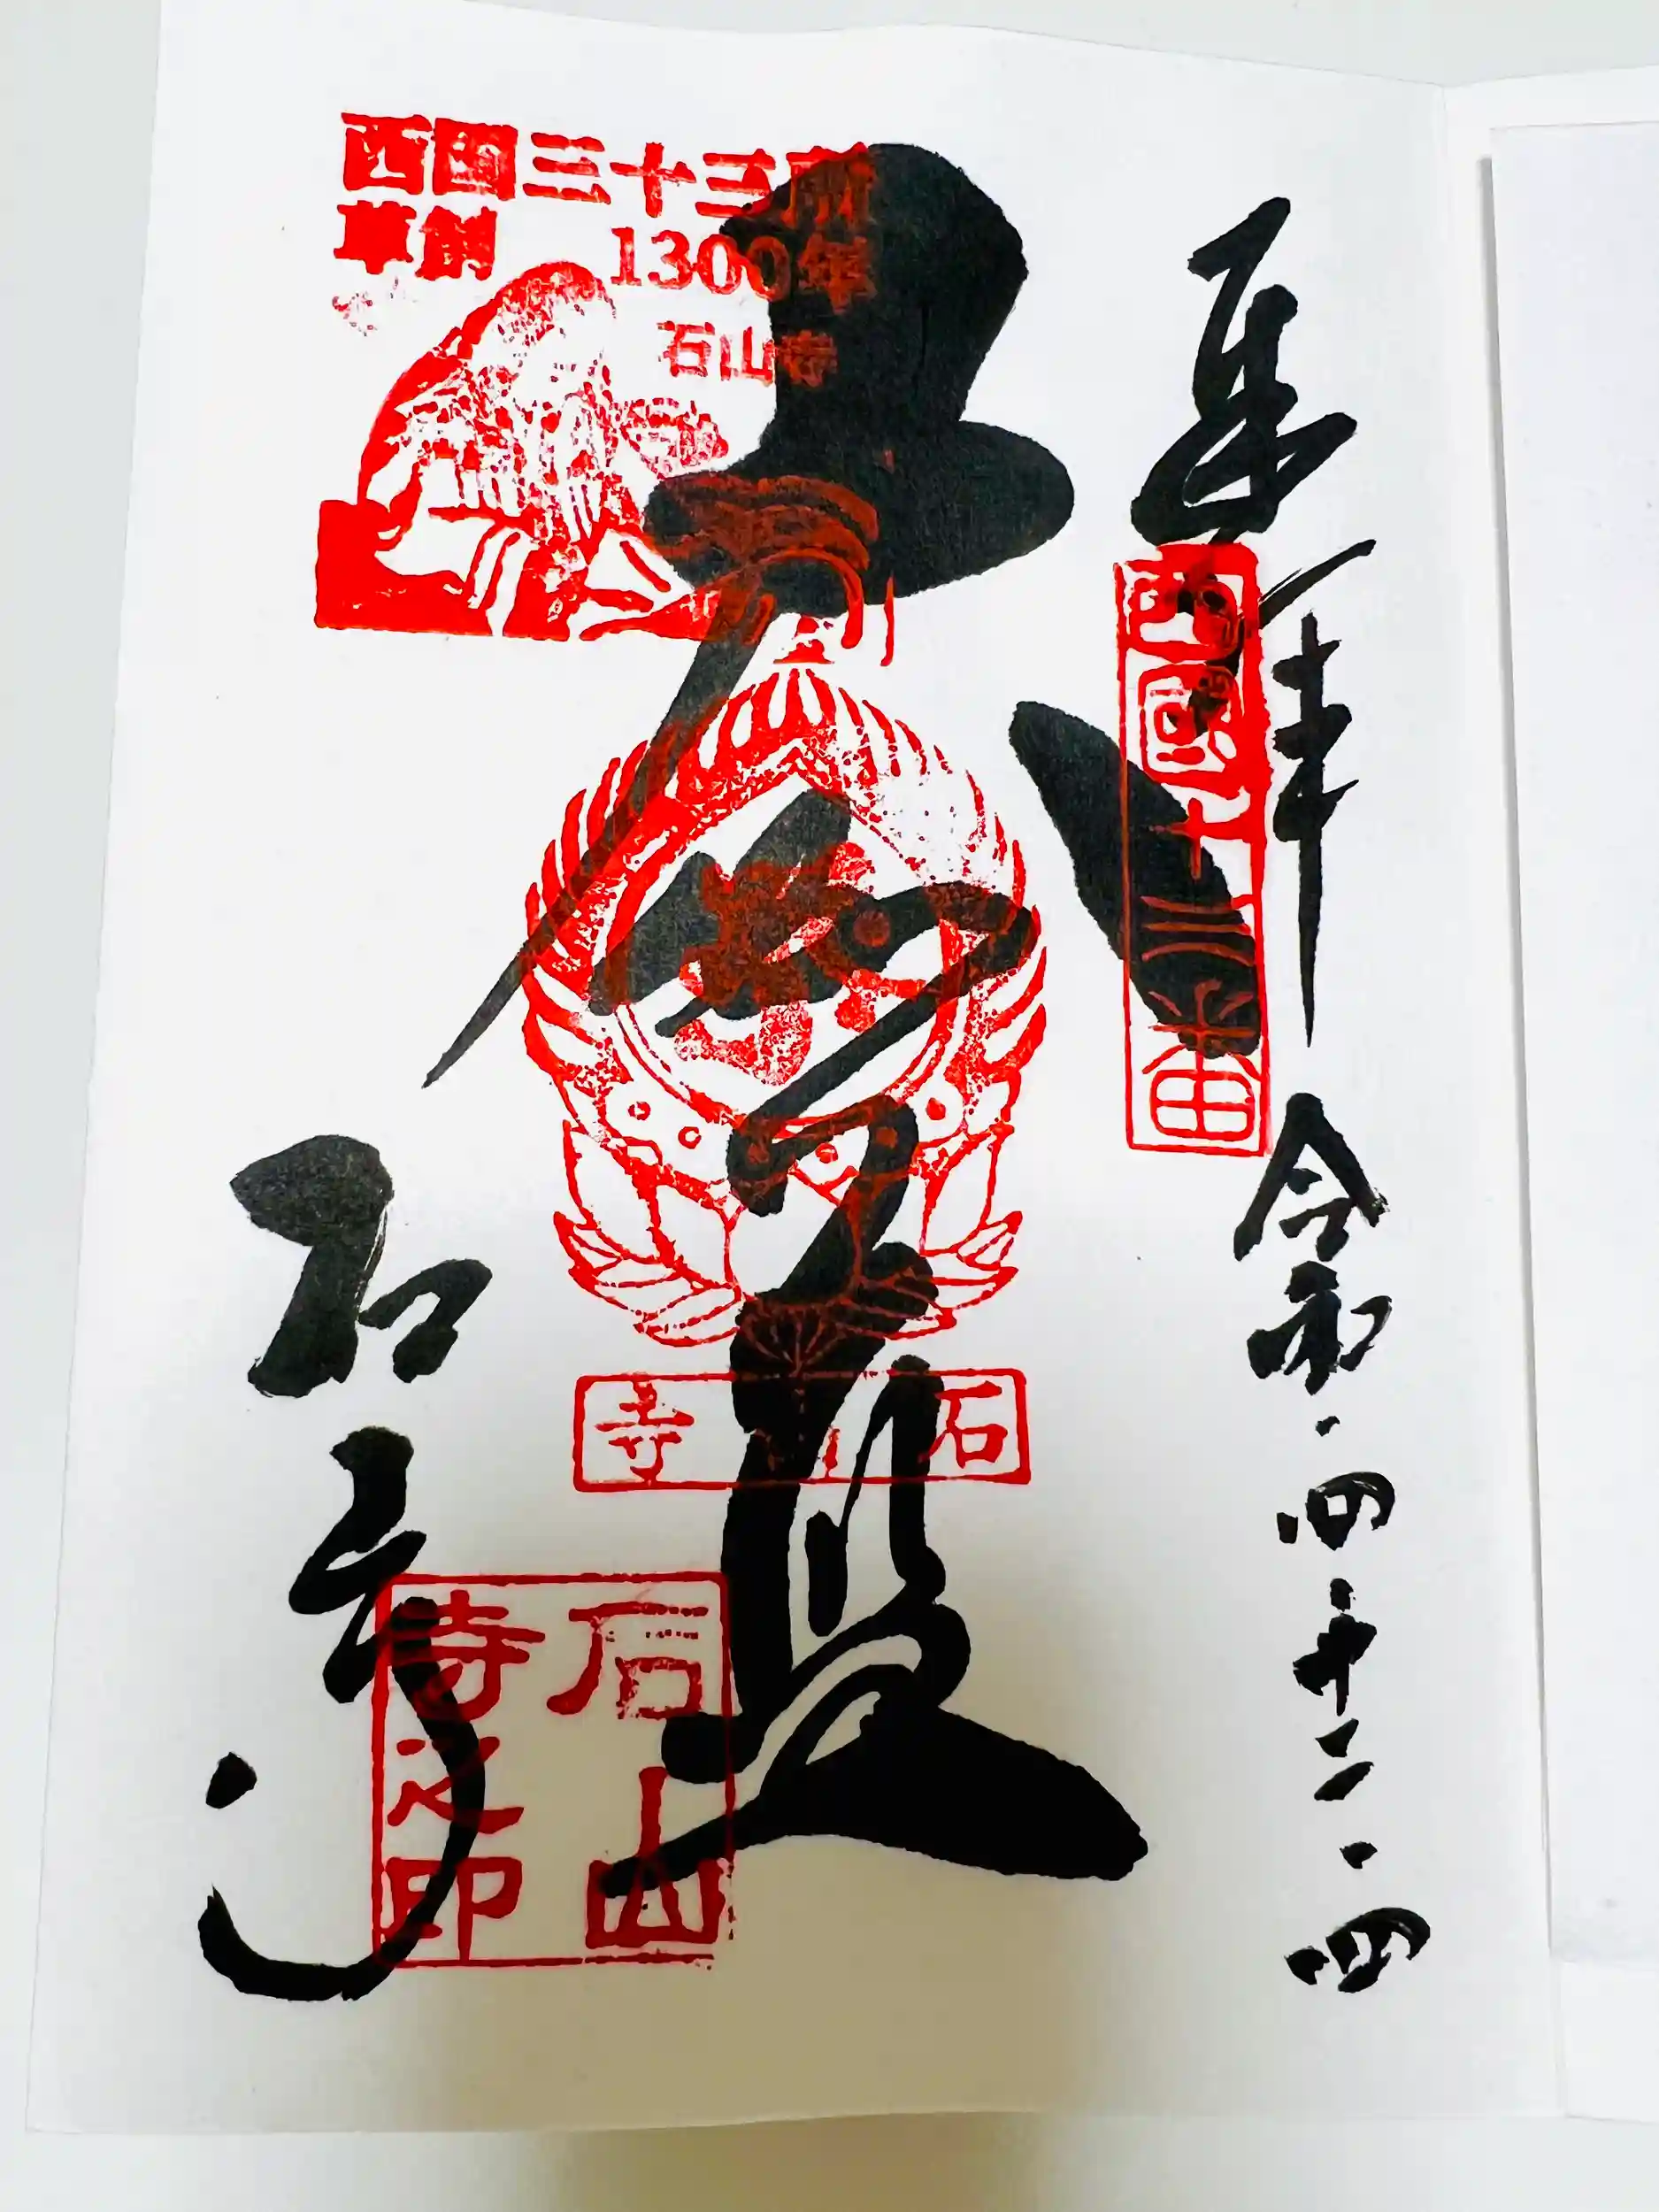 奉拝
令和・四・十二・四
西國十三番
大伽藍
西国三十三所
草創 1300年
石山寺
石山寺
石山寺
石山寺之印